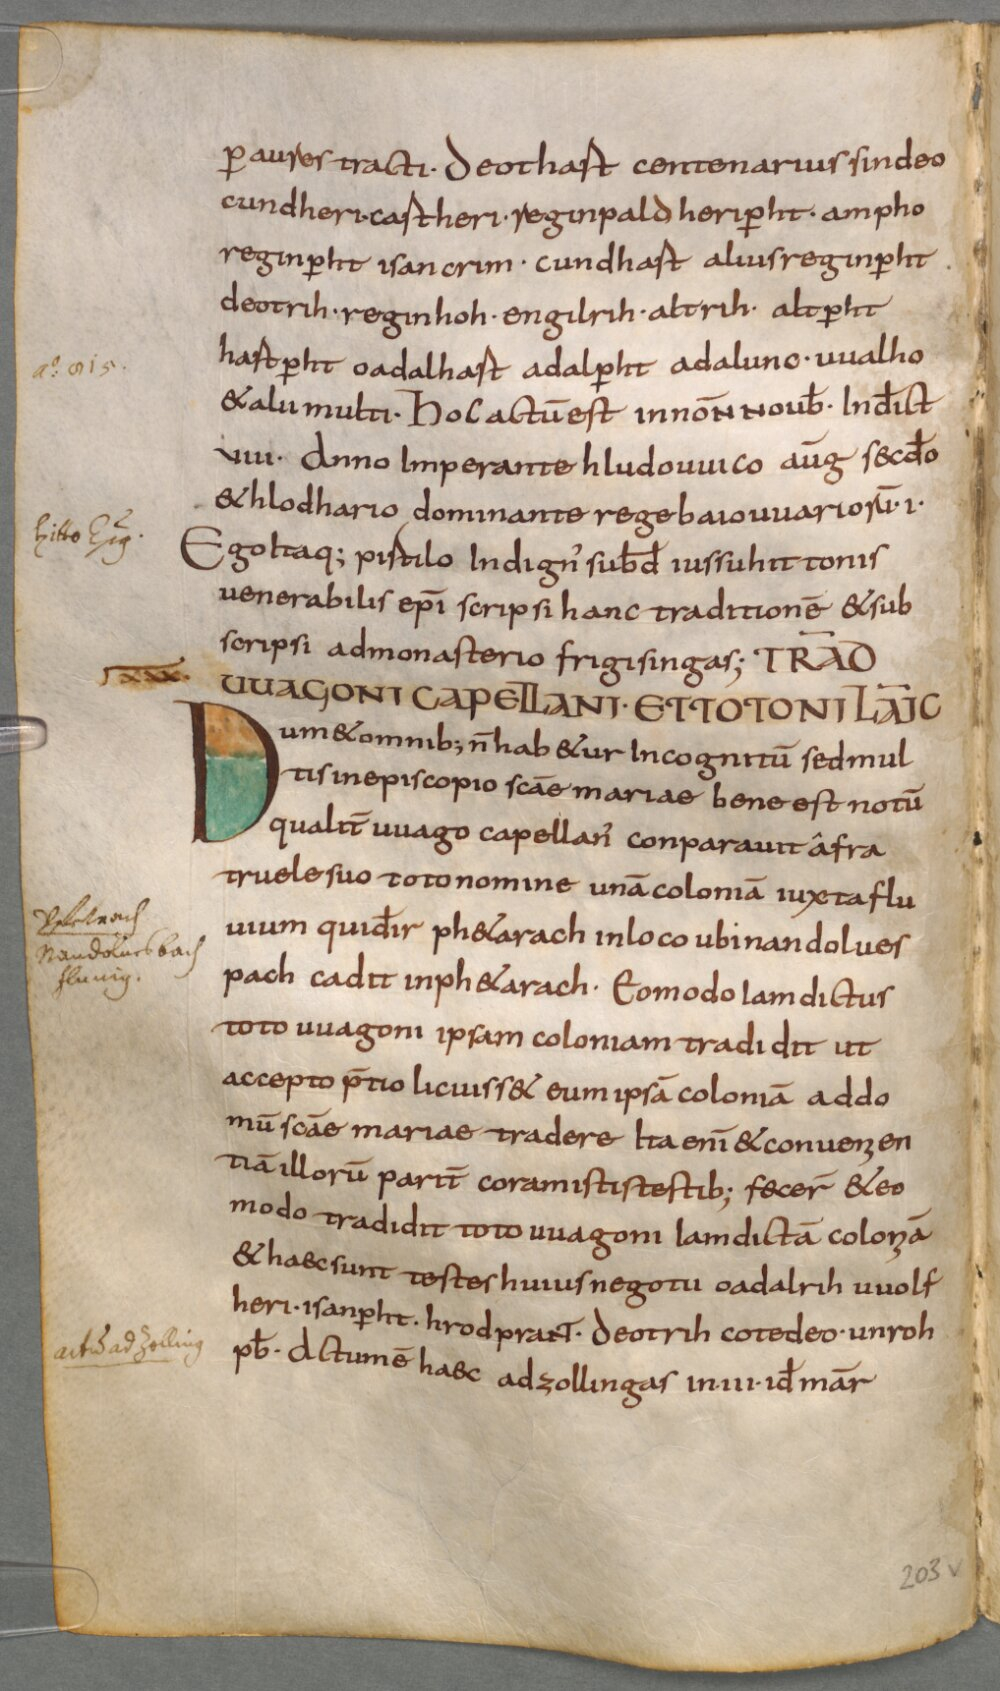 p̱ aures tracti· deothast centenarius sindeo
cundheri·castheri·reginpald heriꝑht· ampho
reginꝑht isancrim· cundhast alius reginꝑht
deotrih·reginhoh·engilrih·altrih· altꝑht
a.º 815.
hastꝑht oadalhast adalꝑht adaluno·uualho
&alii multi· hoc actū est in noN̄ Noub̄· Indict̄
uiii· Anno Imperante hludouuico aūg secdō
& hlodhario dominante rege baiouuariorū·i·
hitto Ep̄.
Egoltaq; pistilo Indign' subd̄ iussu hittonis
uenerabilis ep̄i scripsi hanc traditionē & sub
scripsi ad monasterio frigisingas; TRAD̄
xxx.
UUAGONI CAPELLANI· ET TOTONI LAĪC
Dum & omnib; n̄ hab&ur Incognitū sed mul
tis in episcopio scāe mariae bene est notū
qualit̄ uuago capellan' conparauit a fra
truele suo toto nomine unā coloniā iuxta flu
uium qui dr̄ ph&arach in loco ubi nandolues
Nandoluesbach
fluuig.
pach cadit in ph&arach· Eo modo Iam dictus
toto uuagoni ipsam coloniam tradidit ut
accepto p̄tio licuiss& eum ipsā coloniā ad do
mū scāe mariae tradere Ita eni̅ & conuenen
tiā illorū parit̄ coram istis testib; fecer̄ & eo
modo tradidit toto uuagoni Iam dictā coloniā
& haec sunt testes huius negotii oadalrih uuolf
heri·isanꝑht·hrodpraNT·deotrih cotedeo·unroh
actū ad Zolling
pb̄· Actum ē haec ad zollingas in·iii·id̄ mār
203 v